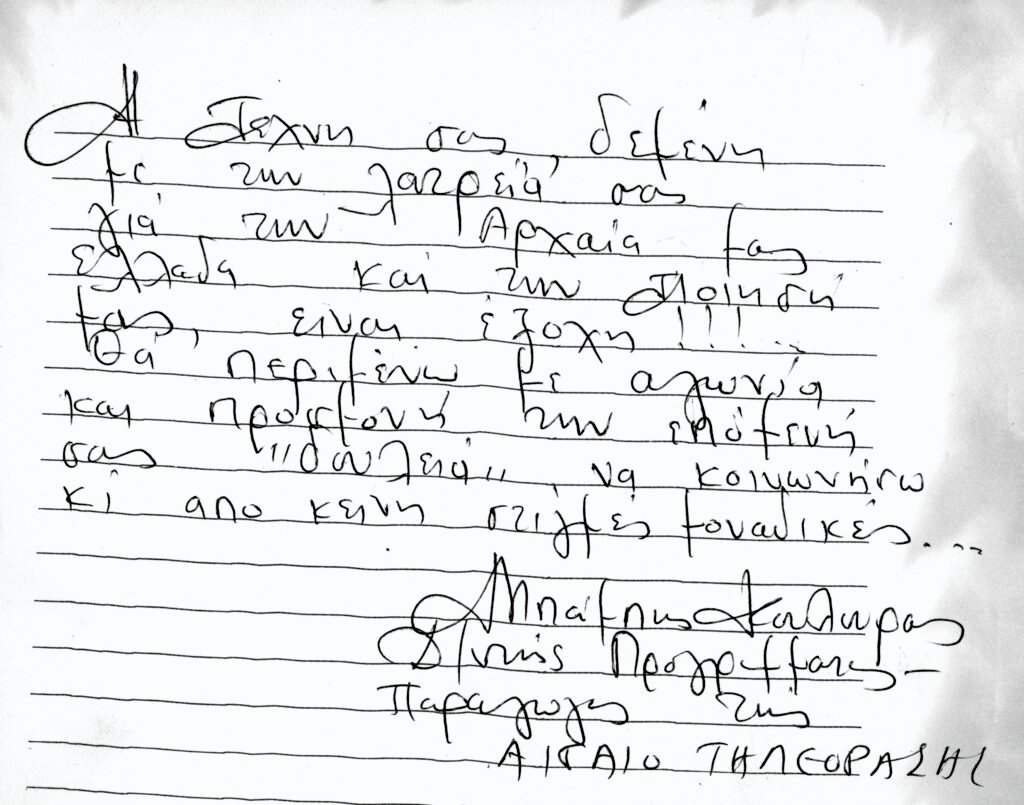 Η Τέχνη σας, δεμένη
με την λατρειά σας
γιά την Αρχαία μας
Ελλαδα και την Ποιηση
μας, ειναι έξοχη!!!...
Θά περιμένω με αγωνία
και προσμονή την επόμενή
σας "δουλειά", να κοινωνήσω
κι απο κεινη στιγμές μοναδικές....
Μπάμπης
Δ/ντής Προγράμματος -
Παραγωγής της
ΑΙΓΑΙΟ ΤΗΛΕΟΡΑΣΗΣ